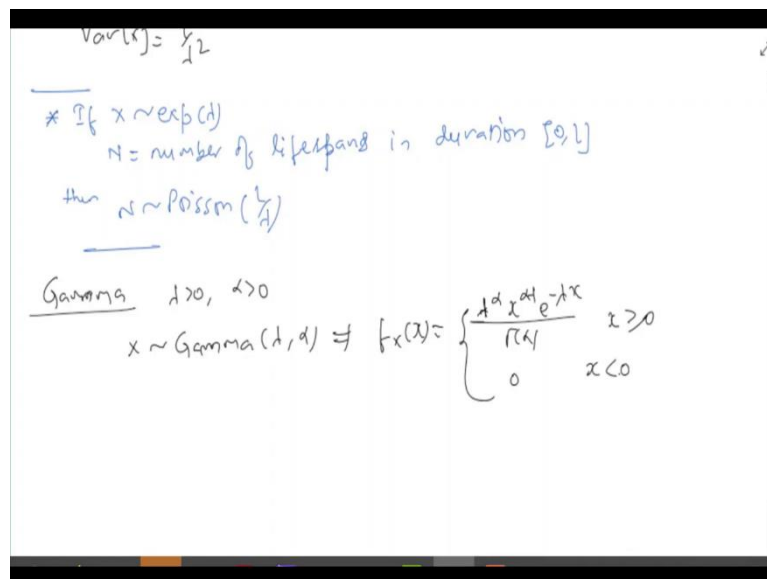 Var(x) = 1/λ²
* If x ~ exp(λ)
N = number of lifespans in duration [0,1]
then N ~ Poisson (1/λ)
Gamma λ>0, α>0
x ~ Gamma(λ, α) ⇒ fx(x) = { λ^α x^(α-1) e^(-λx) / Γ(α) x≥0
0 x<0